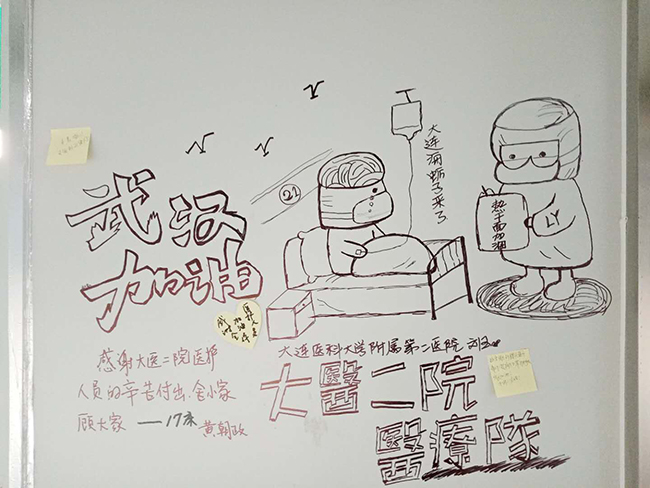 武汉
加油
21
大连海蛎子来了
热干面加油
LY
大连医科大学附属第二医院
大醫二院
醫療隊
感谢大医二院医护
人员的辛苦付出、舍小家
顾大家 —— 17床 黄朝政